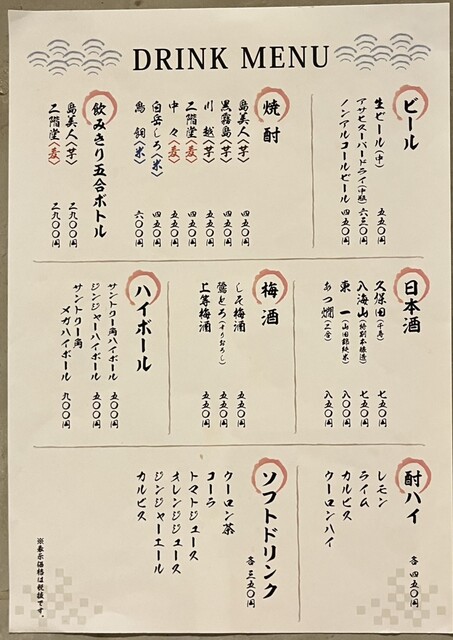 DRINK MENU
ビール
生ビール(中) 五五〇円
アサヒスーパードライ(中瓶) 六五〇円
ノンアルコールビール 四五〇円
焼酎
島美人〈芋〉 四五〇円
黒霧島〈芋〉 四五〇円
川越〈芋〉 五五〇円
二階堂〈麦〉 四五〇円
中々〈麦〉 五五〇円
白岳しろ〈米〉 四五〇円
鳥飼〈米〉 六〇〇円
飲みきり五合ボトル
島美人〈芋〉 二九〇〇円
二階堂〈麦〉 二九〇〇円
日本酒
久保田(千寿) 七五〇円
八海山(特別本醸造) 七五〇円
東一(山田錦純米) 八五〇円
あつ燗(二合) 八五〇円
梅酒
しそ梅酒 五五〇円
鶯とろ(すりおろし) 五五〇円
上等梅酒 五五〇円
ハイボール
サントリー角ハイボール 五〇〇円
ジンジャーハイボール 五〇〇円
サントリー角
メガハイボール 九〇〇円
酎ハイ
各 四五〇円
レモン
ライム
カルピス
ウーロンハイ
ソフトドリンク
各 三五〇円
ウーロン茶
コーラ
トマトジュース
オレンジジュース
ジンジャーエール
カルピス
※表示価格は税抜です。